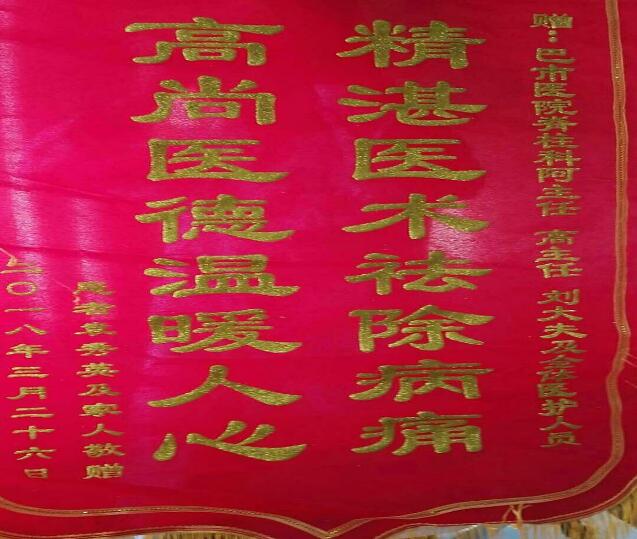 赠：巴市医院脊柱科阿主任 高主任 刘大夫及全体医护人员
精湛医术祛除病痛
高尚医德温暖人心
患者袁秀英及家人敬赠
二〇一八年三月二十六日